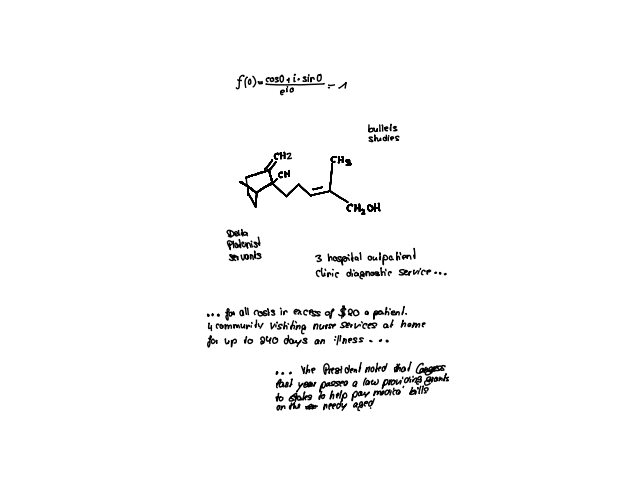 f(0)= cos0 + i · sin0 / e^i0 = 1
bullets
studies
CH2
CH
CH3
CH2OH
Delta
Platonist
servants
3 hospital outpatient
clinic diagnostic service ...
... for all costs in excess of $80 a patient.
4 community visiting nurse services at home
for up to 240 days an illness ...
... The President noted that Congess
last year passed a law providing grants
to states to help pay medical bills
on the needy aged